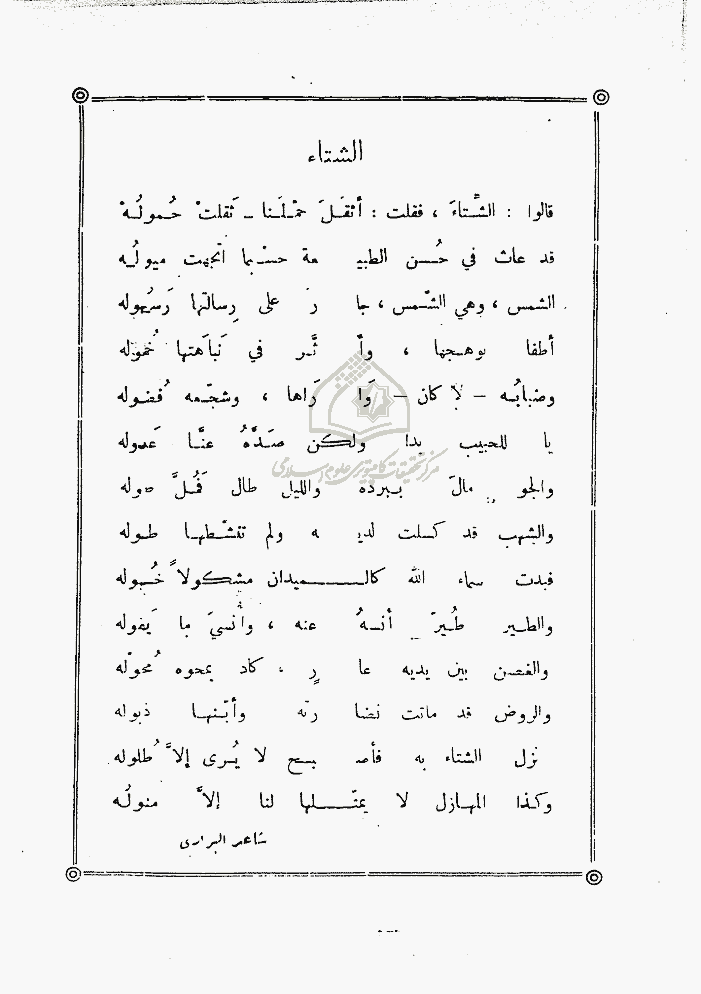 الشتاء
قالوا : الشّتاءَ ، فقلت : أثقَلَ حمْلَنا ـ ثَقلت حُمولُهْ
قد عاث في حُسن الطبيـ ـعة حسْبما اتّجهت ميولُه
الشمس ، وهي الشّمس ، جا رَ على رِسالتها رَسُوله
أطفا توهجها ، وأ ثَّر في نَباهتها خُموله
وضبابُه – لا كان – وَا رَاها ، وشجّعه فُضوله
يا للحبيب بدا ولكن صَدَّهُ عنَّا عَدوله
والجو مالَ ببرده والليل طال فمُلَّ طوله
والشهب قد كسلت لديـ ـه ولم تنشّطها طوله
فبدت سماء الله كالـــميدان مشكولاً خُيوله
والطير طُيّرَ أنسهُ عنه ، وأنسيَ ما يَقوله
والغصن بين يديه عا رٍ ، كاد يمحوه مُحوله
والروض قد ماتت نضا رته وأبّنها ذبوله
نزل الشتاء به فأصـ ـبح لا يُرى إلاَّ طُلوله
وكذا المهازل لا يمثّــلها لنا إلاَّ مثولُه
شاعر البراري
مركز تحقيقات كامپيوتری علوم اسلامی